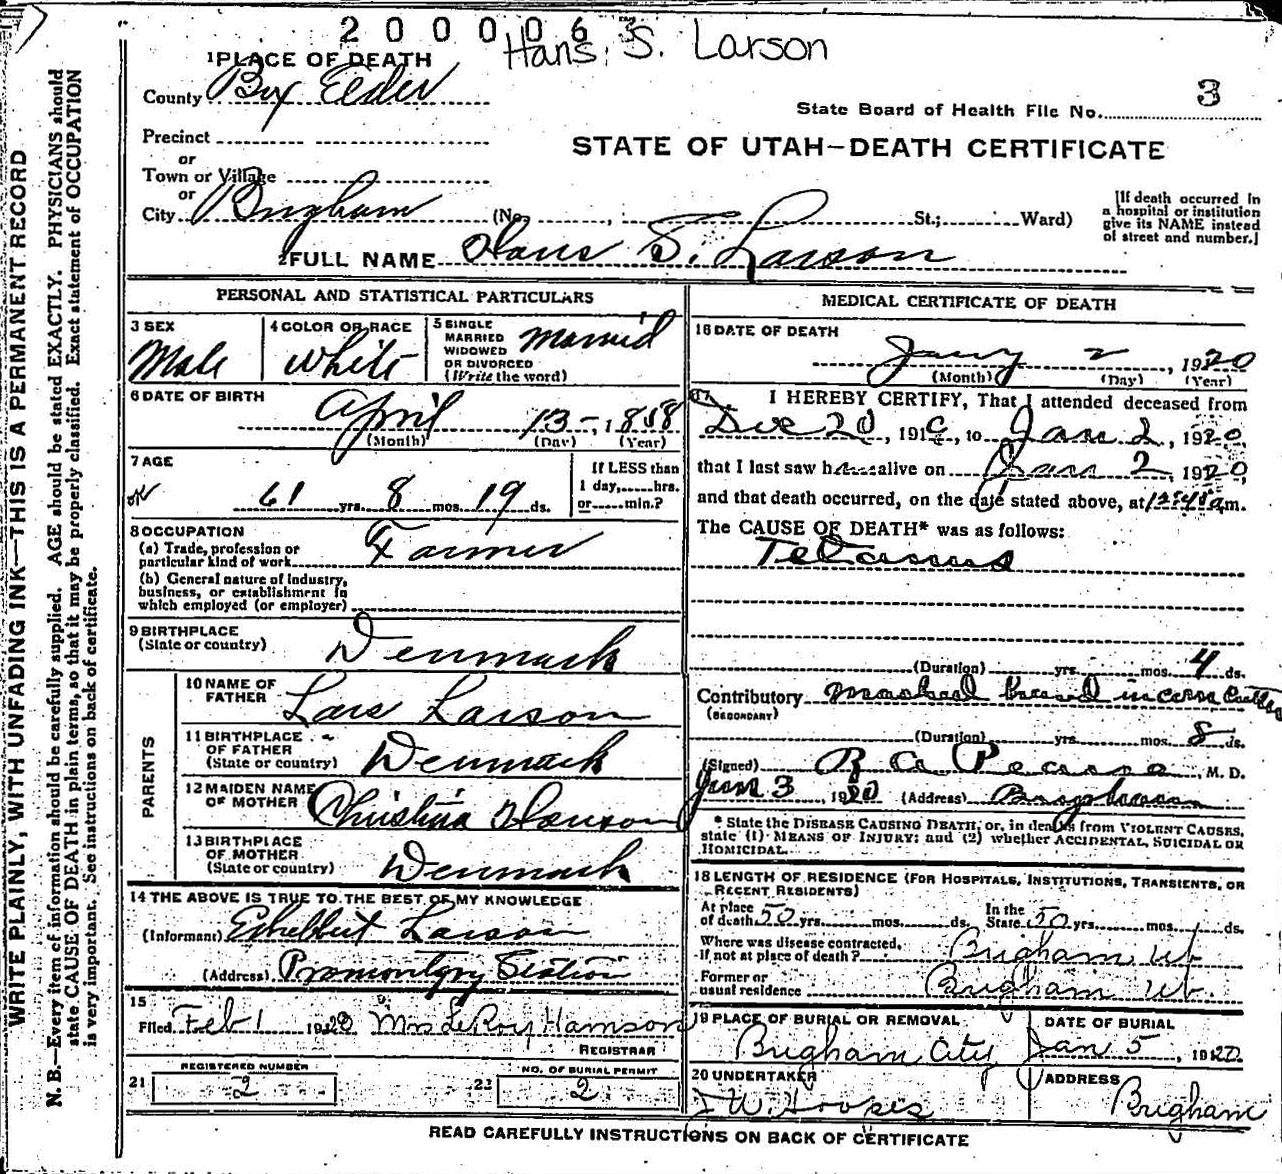 2 0 0 0 0 6 3
Hans. S. Larson
1 PLACE OF DEATH
County Box Elder
State Board of Health File No. 3
Precinct
or
Town or Village
or
City Brigham (No. , St.; Ward)
STATE OF UTAH—DEATH CERTIFICATE
[If death occurred in
a hospital or institution
give its NAME instead
of street and number.]
2 FULL NAME Hans S. Larson
WRITE PLAINLY, WITH UNFADING INK—THIS IS A PERMANENT RECORD
N. B.—Every item of information should be carefully supplied. AGE should be stated EXACTLY. PHYSICIANS should
state CAUSE OF DEATH in plain terms, so that it may be properly classified. Exact statement of OCCUPATION
is very important. See instructions on back of certificate.
PERSONAL AND STATISTICAL PARTICULARS
3 SEX
Male
4 COLOR OR RACE
White
5 SINGLE
MARRIED
WIDOWED
OR DIVORCED
(Write the word)
Married
6 DATE OF BIRTH
April 13-, 1858
(Month) (Day) (Year)
7 AGE
61 yrs. 8 mos. 19 ds.
If LESS than
1 day, hrs.
or min.?
8 OCCUPATION
(a) Trade, profession or
particular kind of work Farmer
(b) General nature of industry,
business, or establishment in
which employed (or employer)
9 BIRTHPLACE
(State or country) Denmark
PARENTS
10 NAME OF
FATHER Lars Larson
11 BIRTHPLACE
OF FATHER
(State or country) Denmark
12 MAIDEN NAME
OF MOTHER Christina Hanson
13 BIRTHPLACE
OF MOTHER
(State or country) Denmark
14 THE ABOVE IS TRUE TO THE BEST OF MY KNOWLEDGE
(Informant) Larson
(Address) Promontory Station
15
Filed Feb 1 1920 Mrs LeRoy
REGISTRAR
REGISTERED NUMBER
21 2
NO. OF BURIAL PERMIT
22 2
MEDICAL CERTIFICATE OF DEATH
16 DATE OF DEATH
Jany 2, 1920
(Month) (Day) (Year)
17 I HEREBY CERTIFY, That I attended deceased from
Dec 20, 1919, to Jan 2, 1920,
that I last saw h alive on Jan 2 1920,
and that death occurred, on the date stated above, at 12:45 am.
The CAUSE OF DEATH* was as follows:
Tetanus
(Duration) yrs. mos. 4 ds.
Contributory mashed hand in corn cutter
(SECONDARY)
(Duration) yrs. mos. 8 ds.
(Signed) R A Pearse, M. D.
Jan 3, 1920 (Address) Brigham
* State the DISEASE CAUSING DEATH, or, in deaths from VIOLENT CAUSES,
state (1) MEANS OF INJURY; and (2) whether ACCIDENTAL, SUICIDAL OR
HOMICIDAL.
18 LENGTH OF RESIDENCE (FOR HOSPITALS, INSTITUTIONS, TRANSIENTS, OR
RECENT RESIDENTS)
At place
of death 50 yrs. mos. ds.
In the
State 50 yrs. mos. ds.
Where was disease contracted,
if not at place of death? Brigham Ut
Former or
usual residence Brigham Ut.
19 PLACE OF BURIAL OR REMOVAL
Brigham City
DATE OF BURIAL
Jan 5, 1920
20 UNDERTAKER
W. Hoopes
ADDRESS
Brigham
READ CAREFULLY INSTRUCTIONS ON BACK OF CERTIFICATE